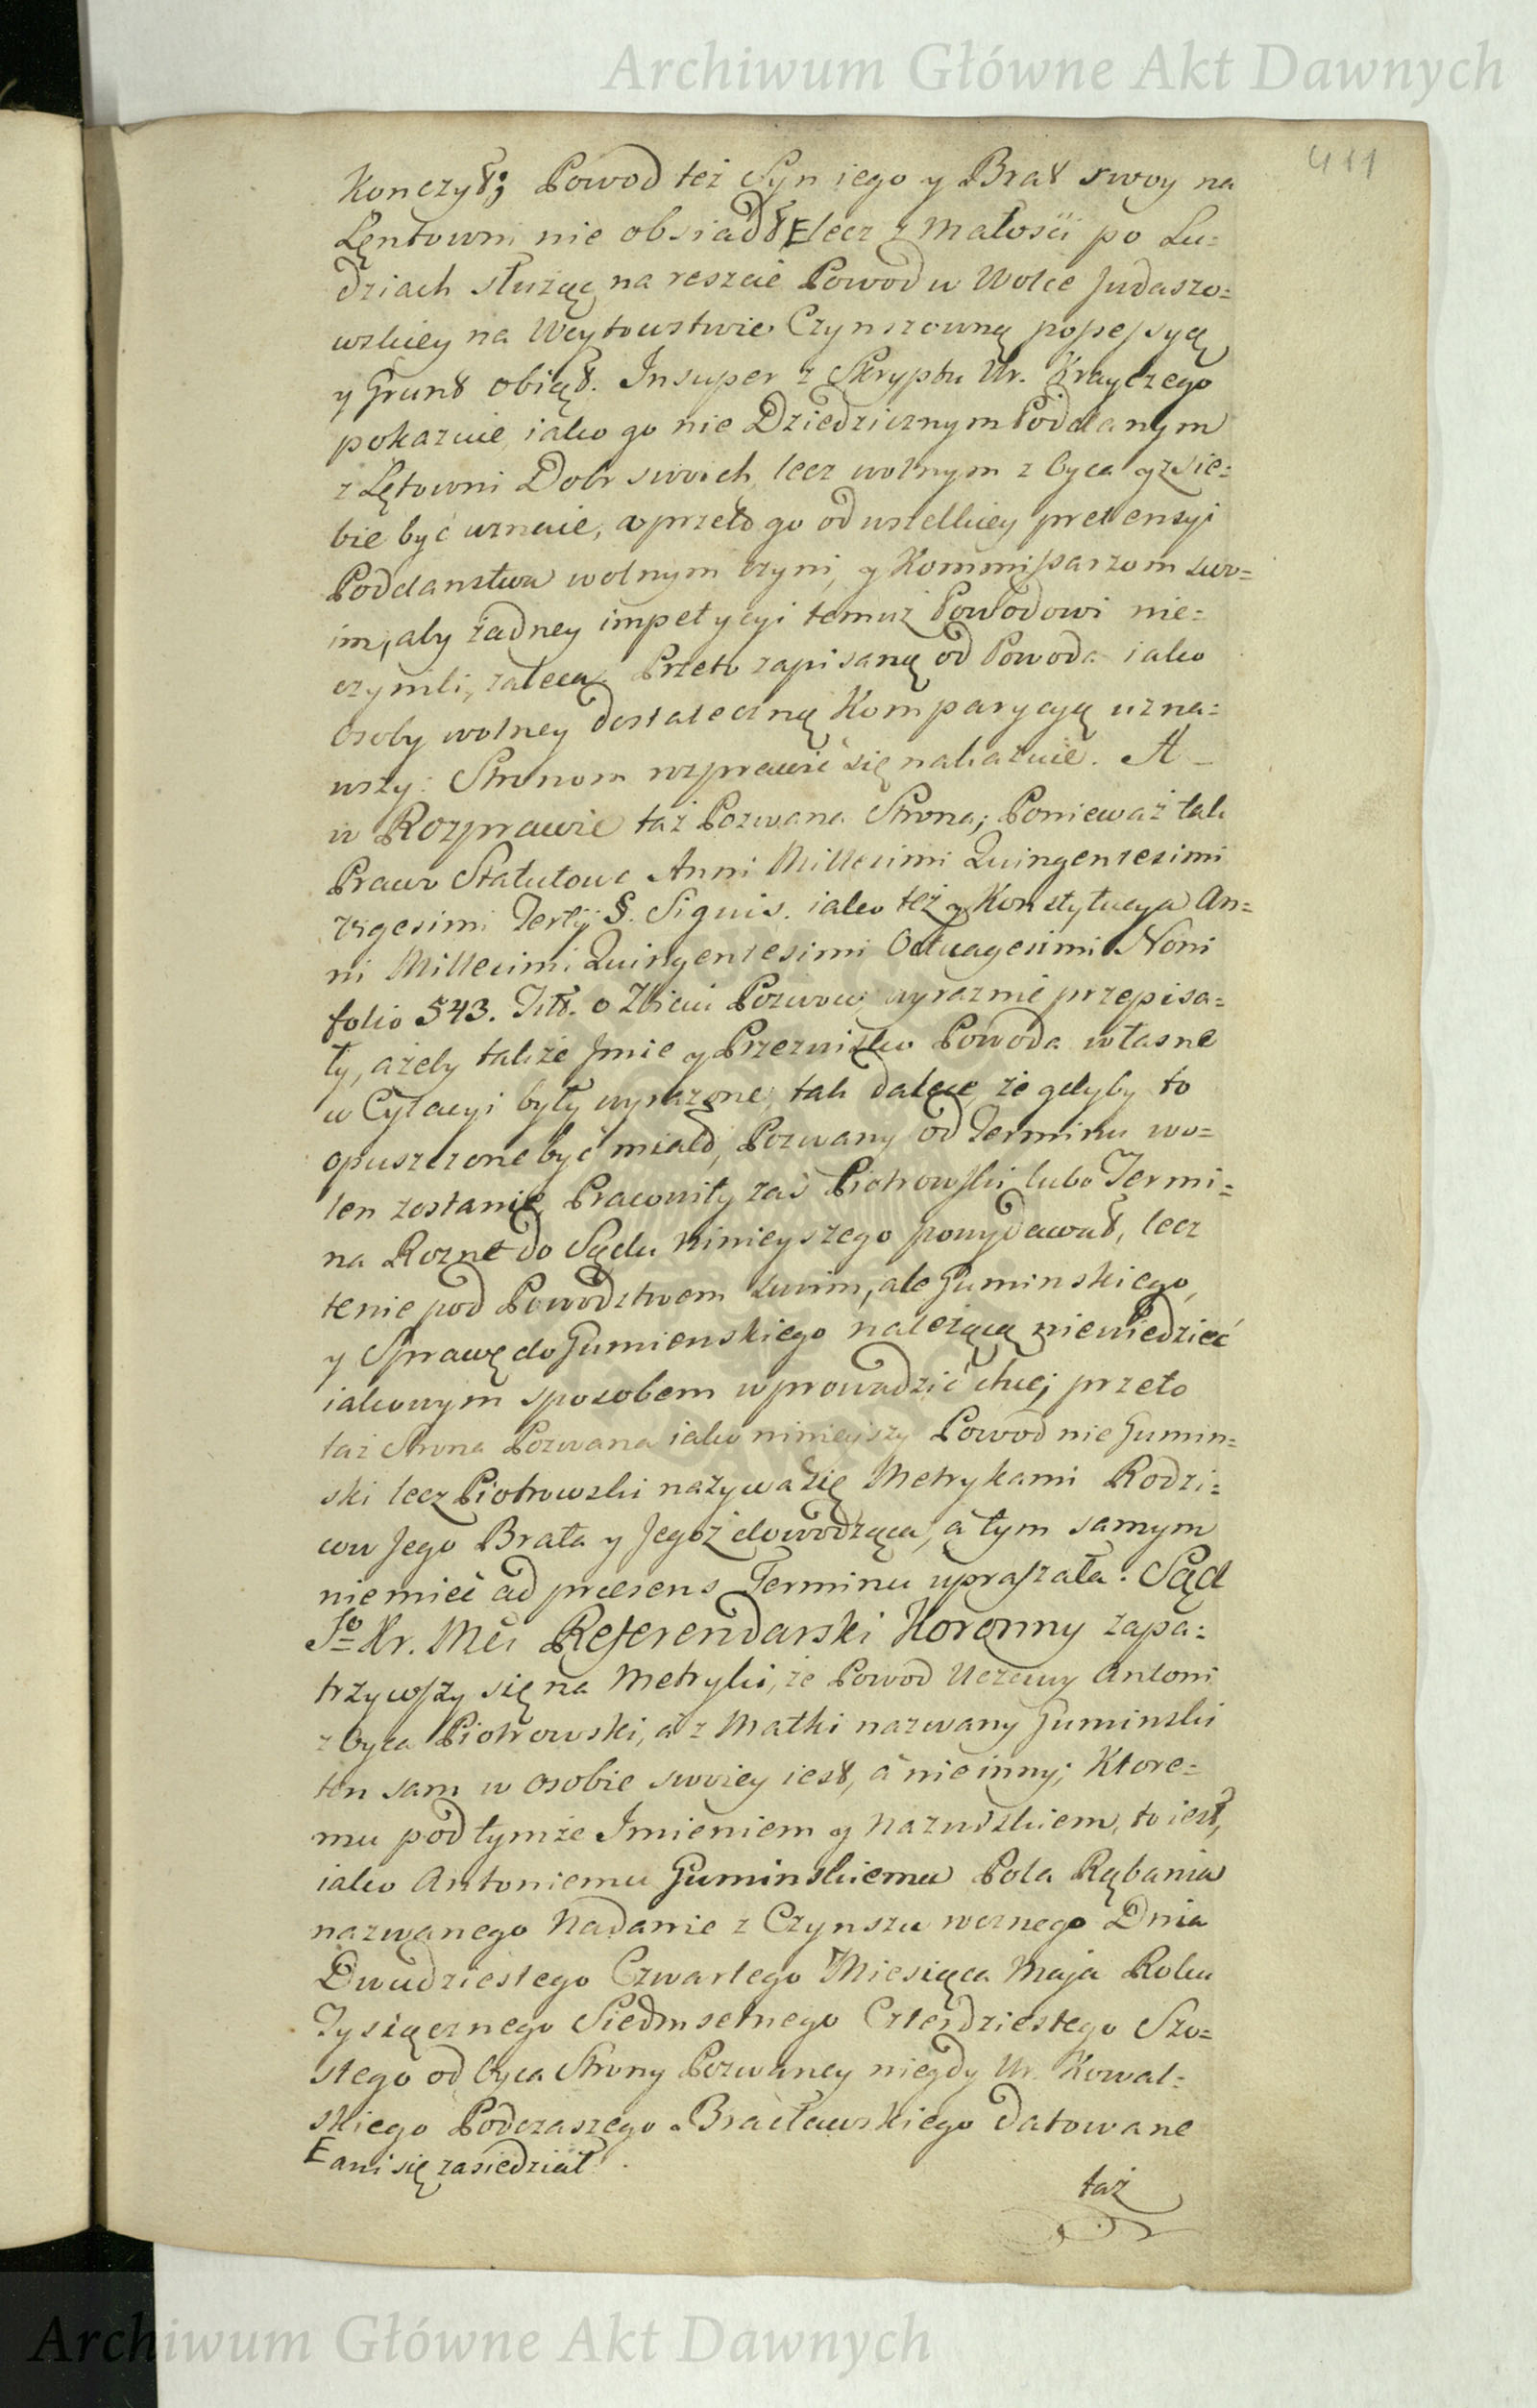 Archiwum Główne Akt Dawnych
411
Konczył; Powod też Syn iego y Brat swoy na
Lęntowni nie obsiadł E lecz z małosci po Lu=
dziach służąc na reszcie Powod w Wolce Judaszo=
wskiey na Woytowstwie Czynszowną possessyą
y Grunt obiął. Insuper z Skryptu Ur. Krayczego
pokazuie iako go nie Dziedzicznym Poddanym
z Lętowni Dobr swoich, lecz wolnym z Oyca y z sie=
bie być uznaie, a przeto go od wszelkiey pretensyi
Poddanstwa wolnym czyni, y Kommissarzom swo=
im, aby żadney impetycyi temuż Powodowi nie=
czynili, zaleca. Przeto zapisaną od Powoda iako
Osoby wolney dostateczną Komparycyą uzna=
wszy: Stronom rozprawić się nakazuie. A
w Rozprawie taż Pozwana Strona; Ponieważ tak
Prawo Statutowe Anni Millesimi Quingentesimi
vigesimi Tertij §. Siquis. iako też y Konstytucya An=
ni Millesimi Quingentesimi Octuagesimi Noni
folio 543. Tit. o Zbiciu Pozwow wyraznie przepisa=
ły, ażeby także Jmie y Przezwisko Powoda własne
w Cytacyi były wyrażone; tak dalece, że gdyby to
opuszczone być miało, Pozwany od Terminu wo=
len zostanie, Pracowity zaś Piotrowski lubo Termi=
na Rozne do Sądu ninieyszego powydawał, lecz
te nie pod Powodztwem swoim, ale Guminskiego,
y Sprawę do Gumienskiego należącą niewiedzieć
iakowym sposobem wprowadzić chce; przeto
taż Strona Pozwana iako ninieyszy Powod nie Gumin=
ski lecz Piotrowski nazywa się Metrykami Rodzi=
cow Jego Brata y Jegoż dowodząca, a tym samym
niemieć ad præsens Terminu upraszała. Sąd
Jo Kr. Mci Referendarski Koronny zapa=
trzywszy się na Metryki, że Powod Uczciwy Antoni
z Oyca Piotrowski, a z Matki nazwany Guminski
ten sam w osobie swoiey iest, a nie inny; Ktore=
mu pod tymże Imieniem y Nazwiskiem, to iest,
iako Antoniemu Guminskiemu Pola Rąbania
nazwanego Nadanie z Czynszu wecznego Dnia
Dwudziestego Czwartego Miesiąca Maja Roku
Tysiącznego Siedmsetnego Czterdziestego Szo=
stego od Oyca Strony Pozwaney niegdy Ur. Kowal=
skiego Podczaszego Bracławskiego datowane
E ani się zasiedział.
taż
Archiwum Główne Akt Dawnych